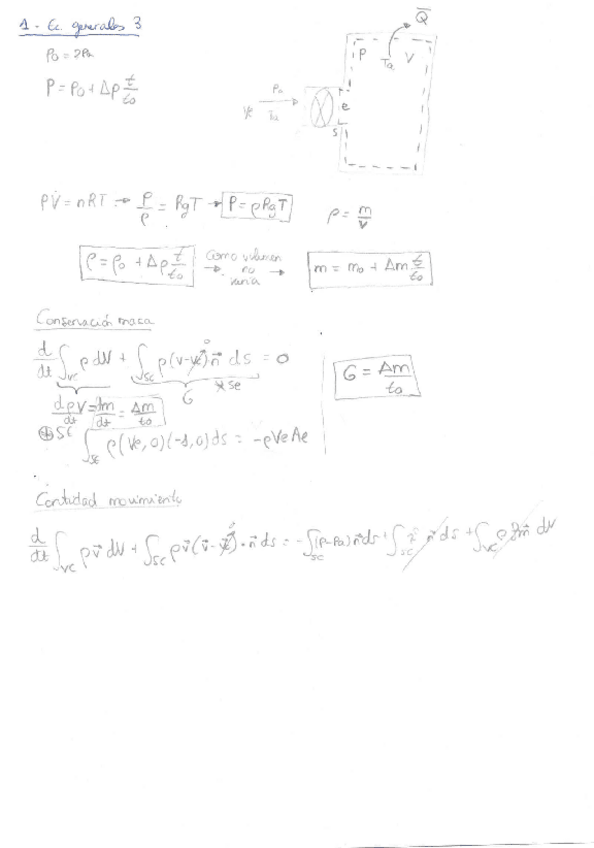 1 - Ec. generales 3
P₀ = 2Pa
P = P₀ + Δp t/t₀
Q̄
P
Ta
V
Pa
Ta
e
s
PV = nRT → P/ρ = RgT → P = ρRgT
ρ = m/V
ρ = ρ₀ + Δρ t/t₀ → Como volumen no varía → m = m₀ + Δm t/t₀
Conservación masa
d/dt ∫VC ρ dV + ∫SC ρ(v-vc)n̄ ds = 0
G = Δm/t₀
G
* Se
dρV/dt = dm/dt = Δm/t₀
⊕ Se ∫Se ρ(Ve, 0)(-1, 0)ds = -ρVeAe
Cantidad movimiento
d/dt ∫VC ρv̄ dV + ∫SC ρv̄(v̄-v̄c)·n̄ ds = -∫SC (p-Pa)n̄ ds + ∫SC τ̄ n̄ ds + ∫VC ρ f̄m dV